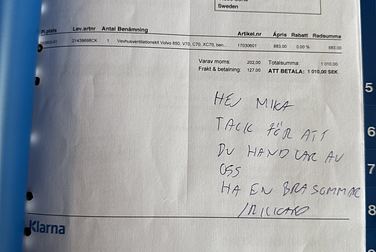 Sweden
Lev.artnr Antal Benämning Artikel.nr Apris Rabatt Radsumma
1 Vevhusventilationskit Volvo 850, V70, C70, XC70, ben... 17030601 883.00 0.00 % 883.00
Varav moms: 202,00 Totalsumma: 1 010,00
Frakt & betalning: 127,00 ATT BETALA: 1 010,00 SEK
HEJ MIKA
TACK FÖR ATT
DU HANDLAR AV
OSS
HA EN BRA SOMMAR
/RICKARD
Klarna
5
6
7
8